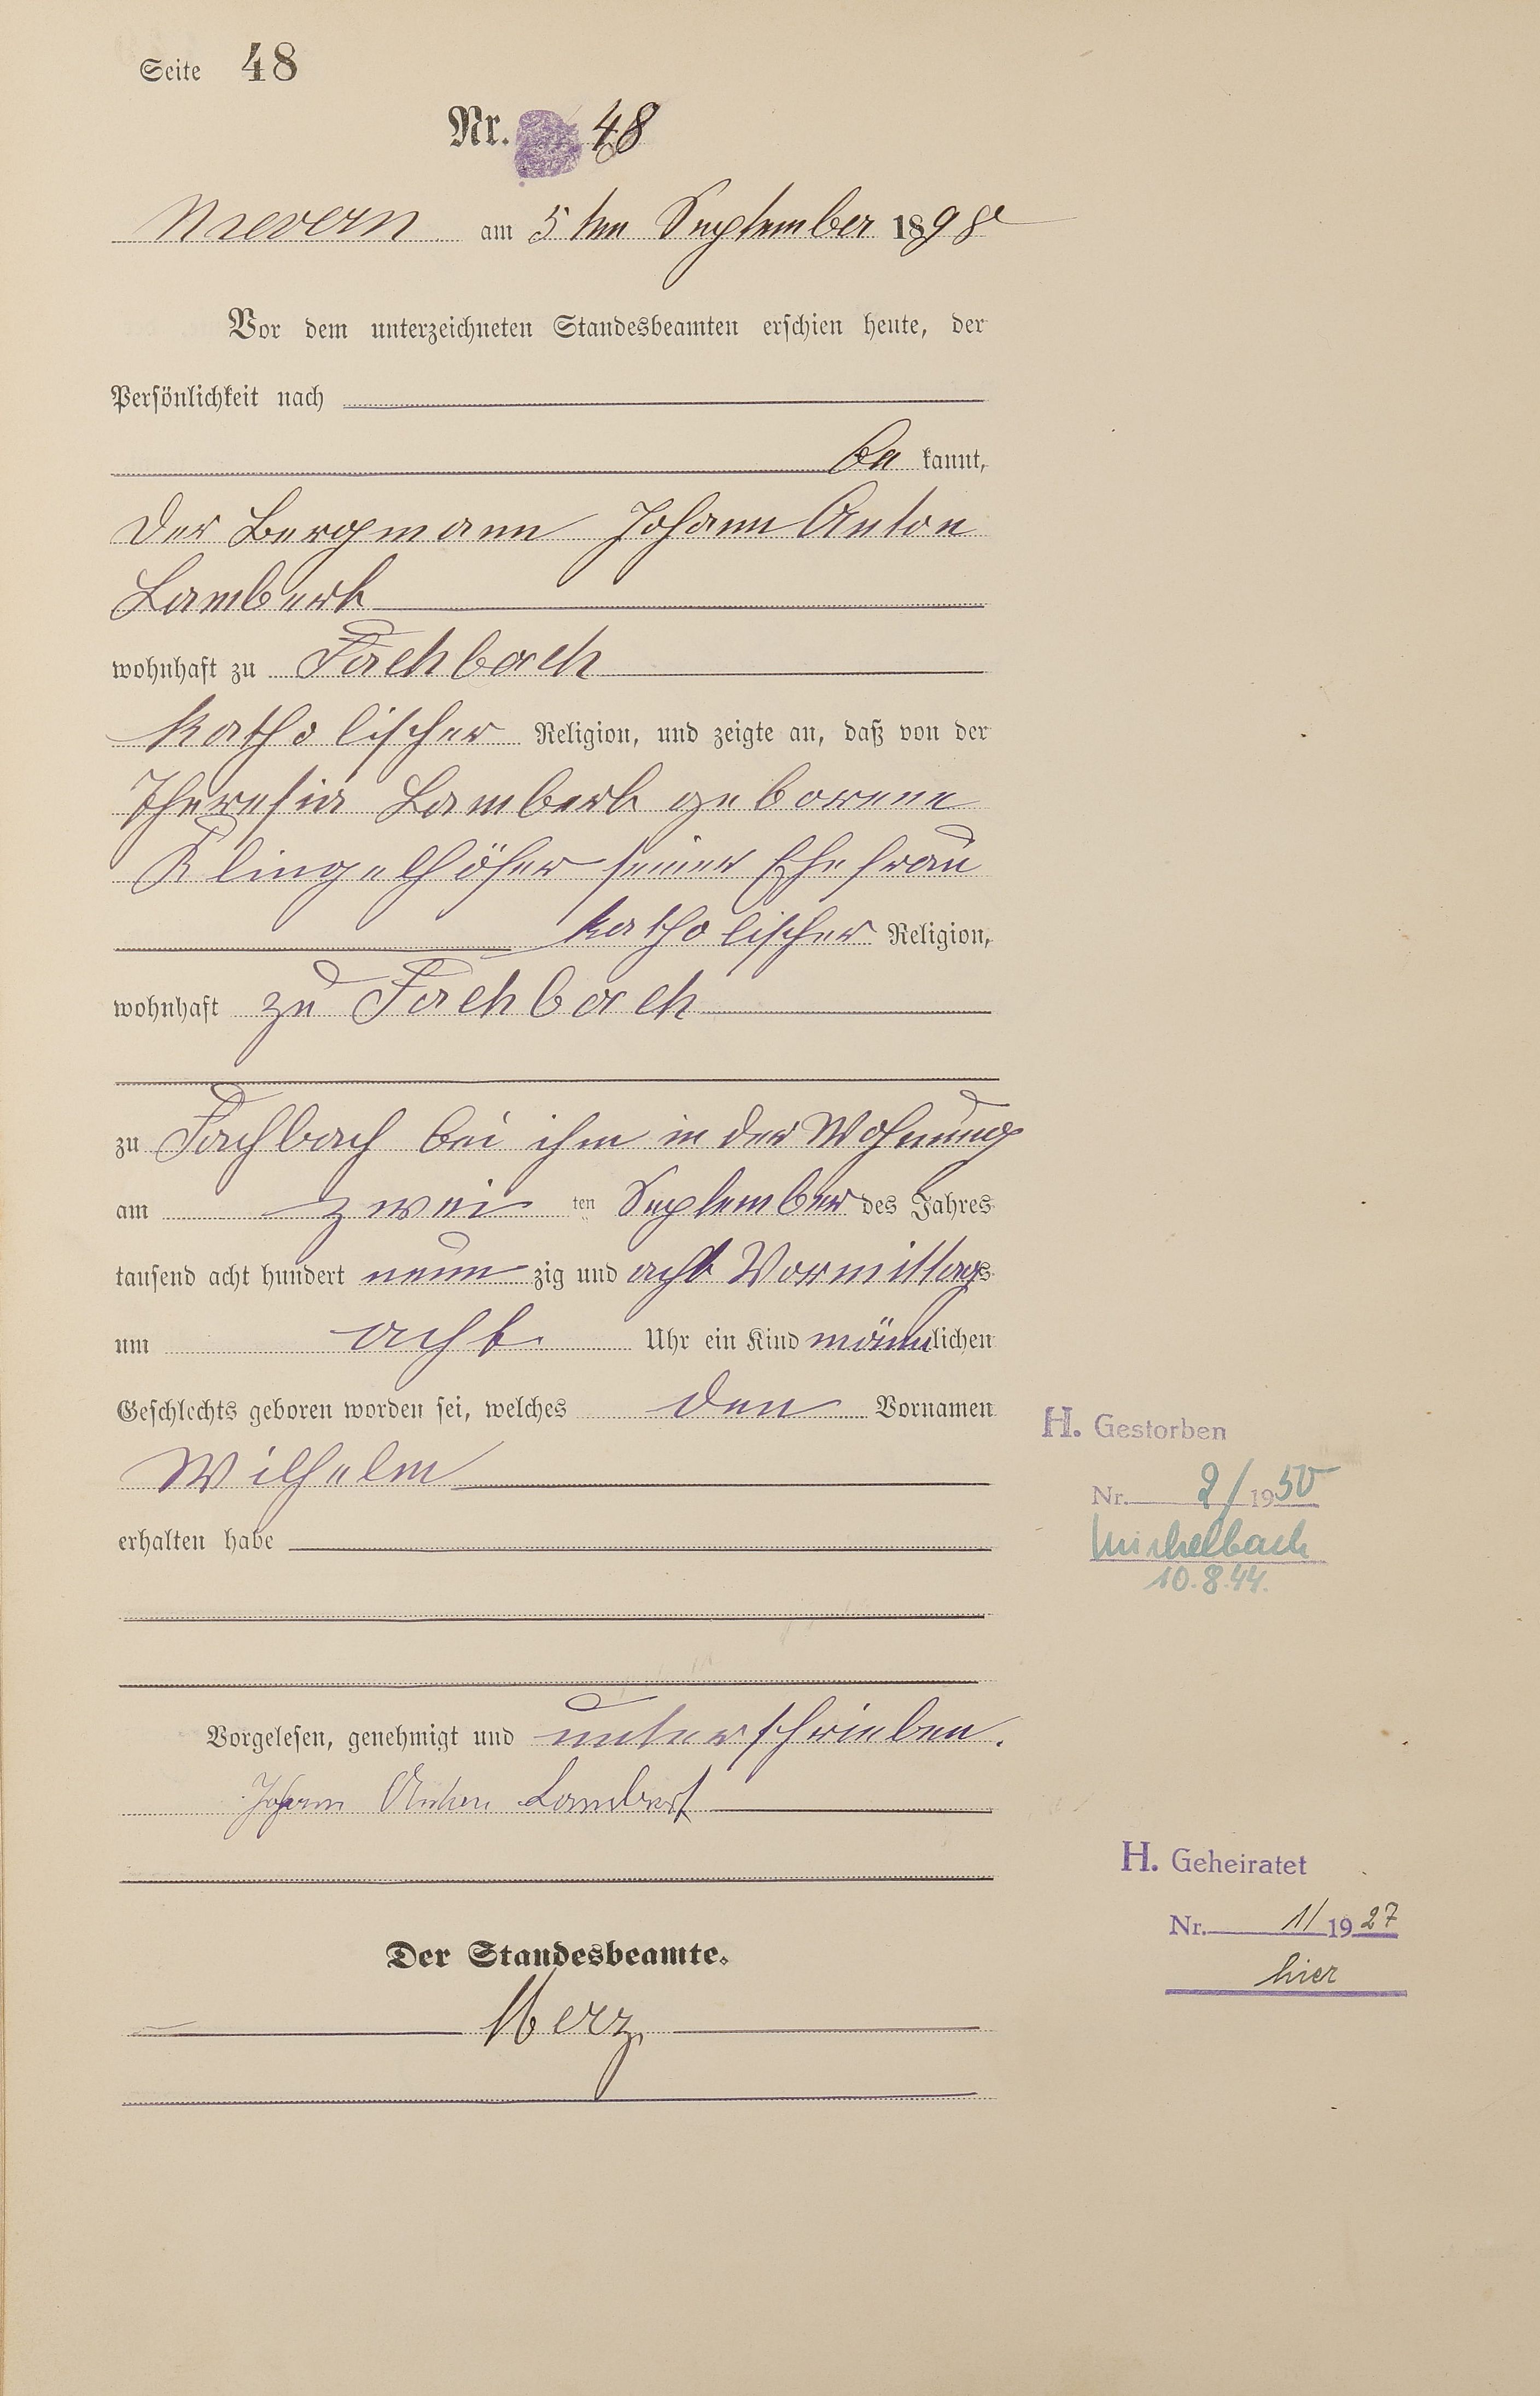 Seite 48
Nr. 48
Nievern am 5ten September 1898
Vor dem unterzeichneten Standesbeamten erschien heute, der
Persönlichkeit nach
be kannt,
der Bergmann Johann Anton
Lambert
wohnhaft zu Fachbach
katholischer Religion, und zeigte an, daß von der
Theresia Lambert geborene
Klingelhöfer seiner Ehefrau
katholischer Religion,
wohnhaft zu Fachbach
zu Fachbach bei ihm in der Wohnung
am zwei ten September des Jahres
tausend acht hundert neun zig und acht Vormittags
um acht Uhr ein Kind männlichen
Geschlechts geboren worden sei, welches den Vornamen
Wilhelm
erhalten habe
Vorgelesen, genehmigt und unterschrieben.
Johann Anton Lambert
Der Standesbeamte.
Merz
H. Gestorben
Nr. 2/1950
Michelbach
10.8.44.
H. Geheiratet
Nr. 1/1927
hier